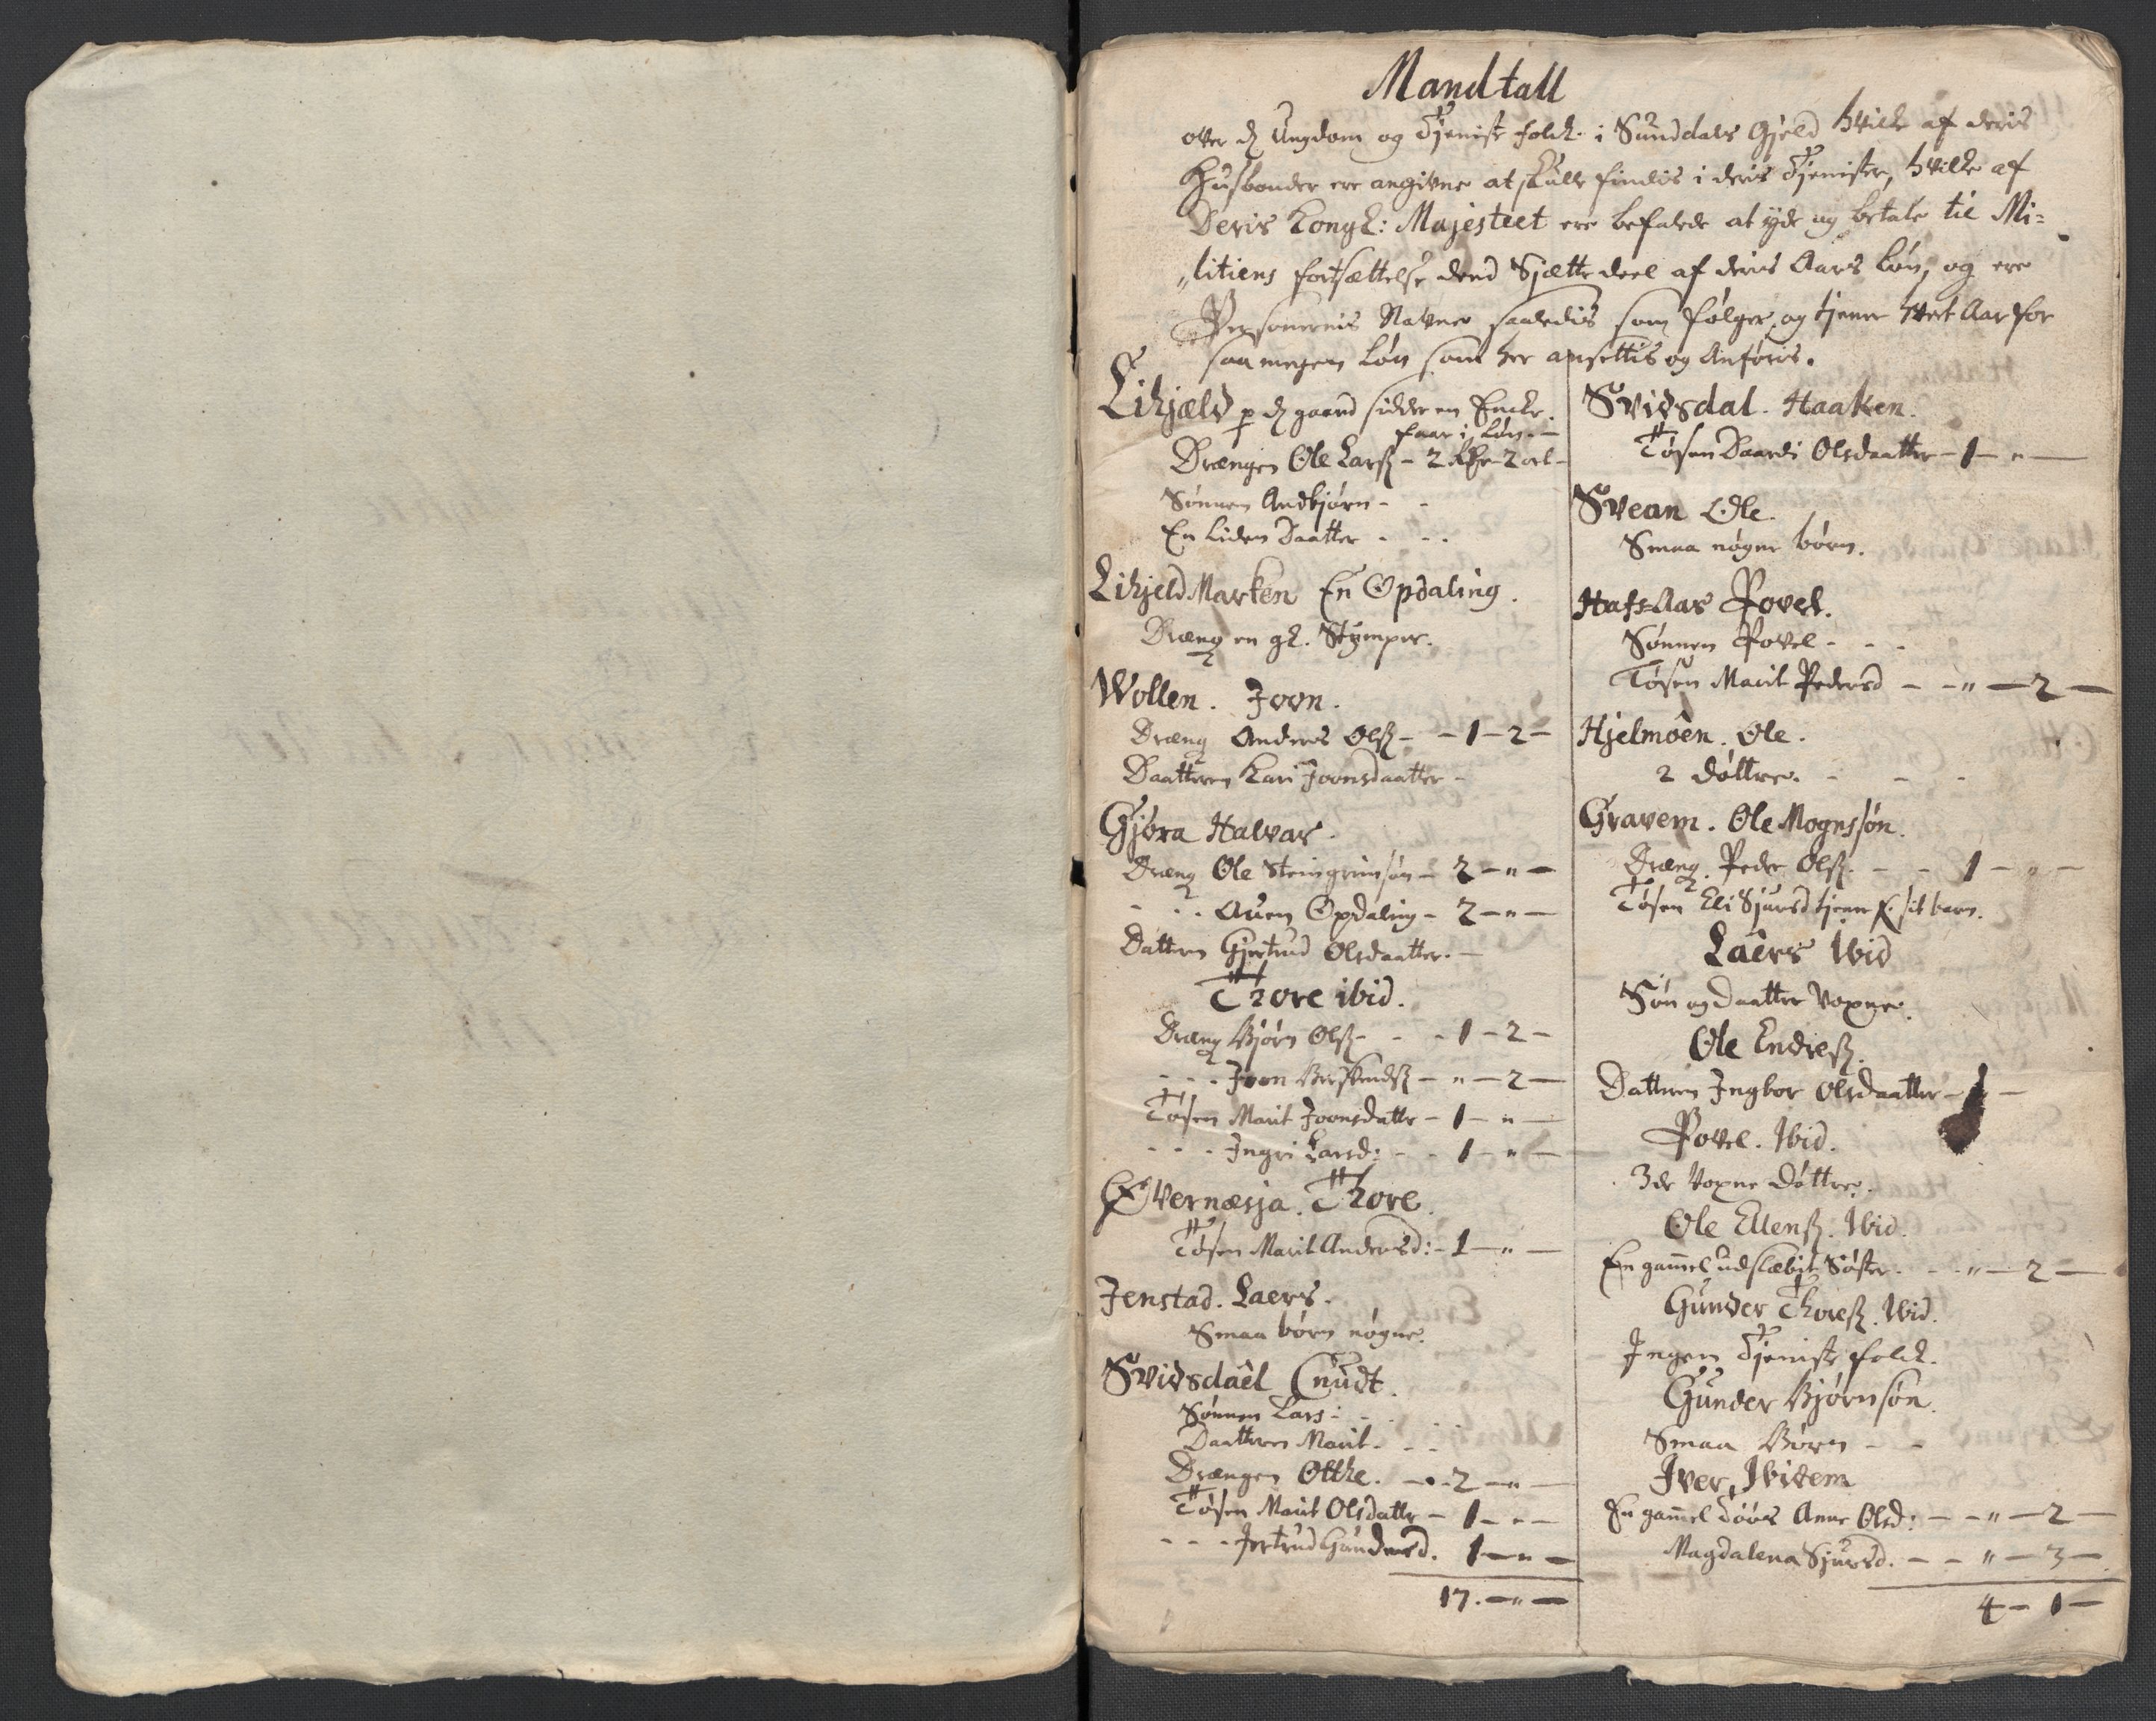 Mandtall
over d Ungdom og Tjeniste folck i Sunddals Gjeld hvilke af deris
Husbonder ere angivne at skulle findis i deris Tjenister, hvilke af
Deris Kongl: Majesteet ere befalede at yde og betale til Mi=
„litiens fortsættelse dend Sjette deel af deris Aars løn, og ere
Personernis Navne saaledis som følger, og tjener hvert Aar for
saa megen løn som her ansettis og Anføris.
Lihjæld p d gaard sidder en Encke.
faar i løn. —
Drængen Ole Larß - 2 Rdr - 2 ort -
Sønnen Andbjørn - -
En liden Daatter - - -
Lihjeld Marken En Opdaling.
Dræng en gl. Stymper.
Wollen. Joen.
Dræng Anders Olß - - 1 - 2 -
Daatteren Kari Joensdaatter -
Gjøra Halvar.
Dræng Ole Steingrimsøn - 2 - „ -
- - - Auen Opdaling - 2 - „ -
Datteren Gjertrud Olsdaatter. -
Thore ibid.
Dræng Bjørn Olß - - - 1 - 2 -
- - - Joen - „ - 2 -
Tøsen Marit Joensdatter - 1 - „ -
- - - Ingri Larsd: - - 1 - „ -
Øvernæsja. Thore.
Tøsen Marit Andersd: - 1 - „ -
Jenstad. Laers.
Smaa børn nøgne.
Svidsdael Cnudt.
Sønnen Lars - -
Daatteren Marit - - -
Drængen Otthe. - - 2 - „ -
Tøsen Marit Olsdatter - 1 - „ -
- - - Jertrud Gundersd. 1 - „ -
17. - „ -
Svidsdal. Haaken.
Tøsen Baardi Olsdaatter - 1 - „ -
Svean Ole.
Smaa nøgne børn.
Hafs=Aas Povel.
Sønnen Povel - - -
Tøsen Marit Pedersd - - „ - 2 -
Hjelmoen. Ole.
2 døttre. - - -
Gravem. Ole Mognssøn.
Dræng. Peder Olß. - - 1 - „ -
Tøsen Eli Sjursd tjener f. sit barn.
Laers Ibid
Søn og Daatter Voxne.
Ole Endreß.
Datteren Ingbor Olsdaatter - 1 -
Povel. Ibid.
3de Voxne Døttre.
Ole Ellenß. Ibid.
En gam̄el udslæbt Søster. - - „ - 2 -
Gunder Thoreß. Ibid.
Ingen Tjeniste folck.
Gunder Bjørnsøn.
Smaa Børn - -
Iver, Ibidem
En gam̄el Tøøs Anne Olsd: - - „ - 2 -
Magdalena Sjursd. - - „ - 3 -
4 - 1 -